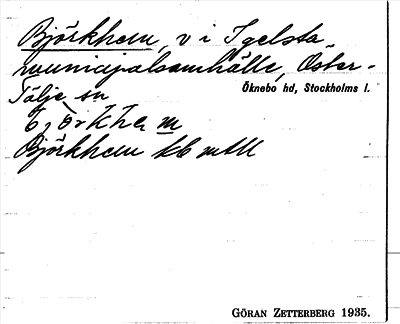 Björkhem, v i Igelsta
municipalsamhälle, Öster-
Tälje sn
Öknebo hd, Stockholms l.
b, ö̀rkhem
Björkhem kb mtll
GÖRAN ZETTERBERG 1935.